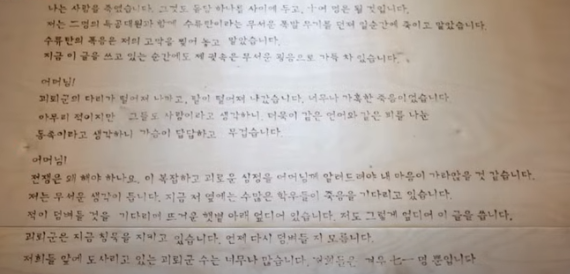 나는 사람을 죽였습니다. 그것도 돌담 하나를 사이에 두고, 십여 명은 될 것입니다.
저는 二명의 특공대원과 함께 수류탄이라는 무서운 폭발 무기를 던져 일순간에 죽이고 말았습니다.
수류탄의 폭음은 저의 고막을 찢어 놓고 말았습니다.
지금 이 글을 쓰고 있는 순간에도 제 귓속은 무서운 굉음으로 가득 차 있습니다.
어머님!
괴뢰군의 다리가 떨어져 나가고, 팔이 떨어져 나갔습니다. 너무나 가혹한 죽음이었습니다.
아무리 적이지만 그들도 사람이라고 생각하니, 더욱이 같은 언어와 같은 피를 나눈
동족이라고 생각하니 가슴이 답답하고 무겁습니다.
어머님!
전쟁은 왜 해야 하나요. 이 복잡하고 괴로운 심정을 어머님께 알려드려야 내 마음이 가라앉을 것 같습니다.
저는 무서운 생각이 듭니다. 지금 저 옆에는 수많은 학우들이 죽음을 기다리고 있습니다.
적이 덤벼들 것을 기다리며 뜨거운 햇볕 아래 엎디어 있습니다. 저도 그렇게 엎디어 이 글을 씁니다.
괴뢰군은 지금 침묵을 지키고 있습니다. 언제 다시 덤벼들 지 모릅니다.
저희들 앞에 도사리고 있는 괴뢰군 수는 너무나 많습니다. 저희들은 겨우 七一 명 뿐입니다